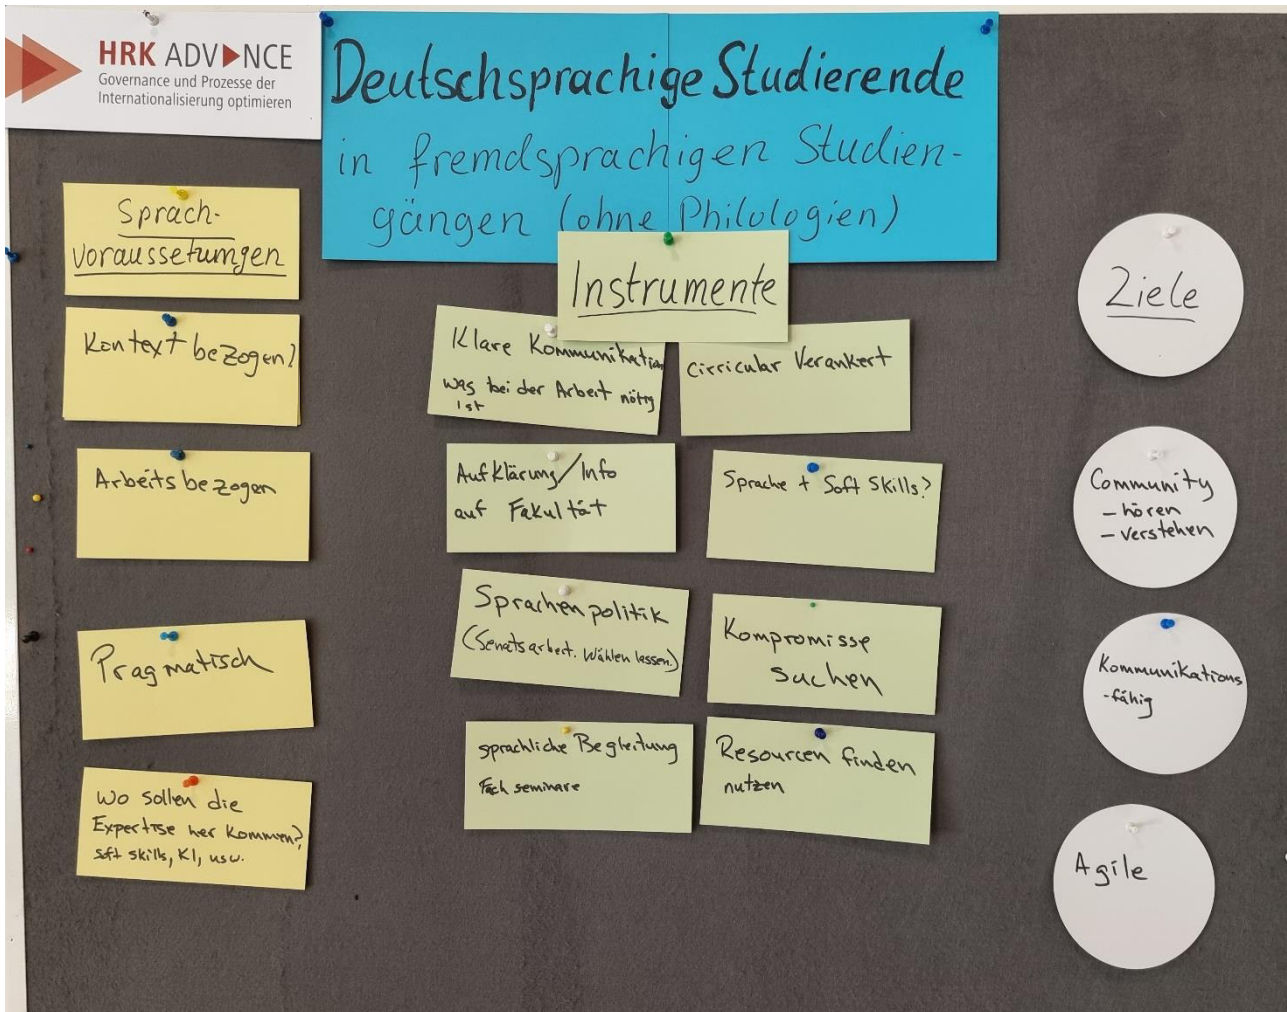 HRK ADVANCE
Governance und Prozesse der
Internationalisierung optimieren
Deutschsprachige Studierende
in fremdsprachigen Studien-
gängen (ohne Philologien)
Sprach-
voraussetzungen
Kontext bezogen?
Arbeitsbezogen
Pragmatisch
Wo sollen die
Expertise her kommen?
Soft skills, KI, usw.
Instrumente
Klare Kommunikation
was bei der Arbeit nötig
ist
Cirricular Verankert
Aufklärung/Info
auf Fakultät
Sprache + Soft Skills?
Sprachenpolitik
(Senatsarbeit. Wählen lassen.)
Kompromisse
suchen
sprachliche Begleitung
Fachseminare
Resourcen finden
nutzen
Ziele
Community
- hören
- verstehen
Kommunikations
-fähig
Agile